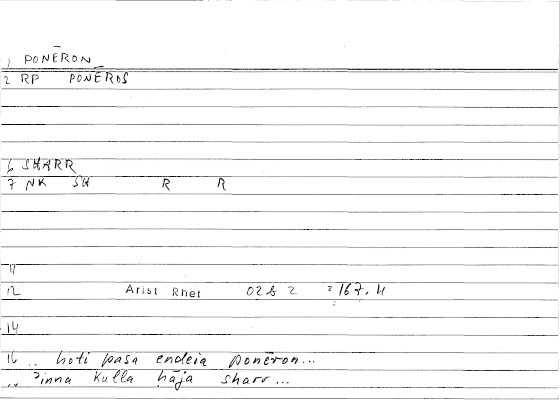 1 PONĒRON
2 RP PONĒROS
6 SHARR
7 NK SH R R
11
12 Arist Rhet 02 & 2 167.4
14
16 .. hoti pasa endeia ponēron...
.. ʾinna kulla ḥāja sharr...